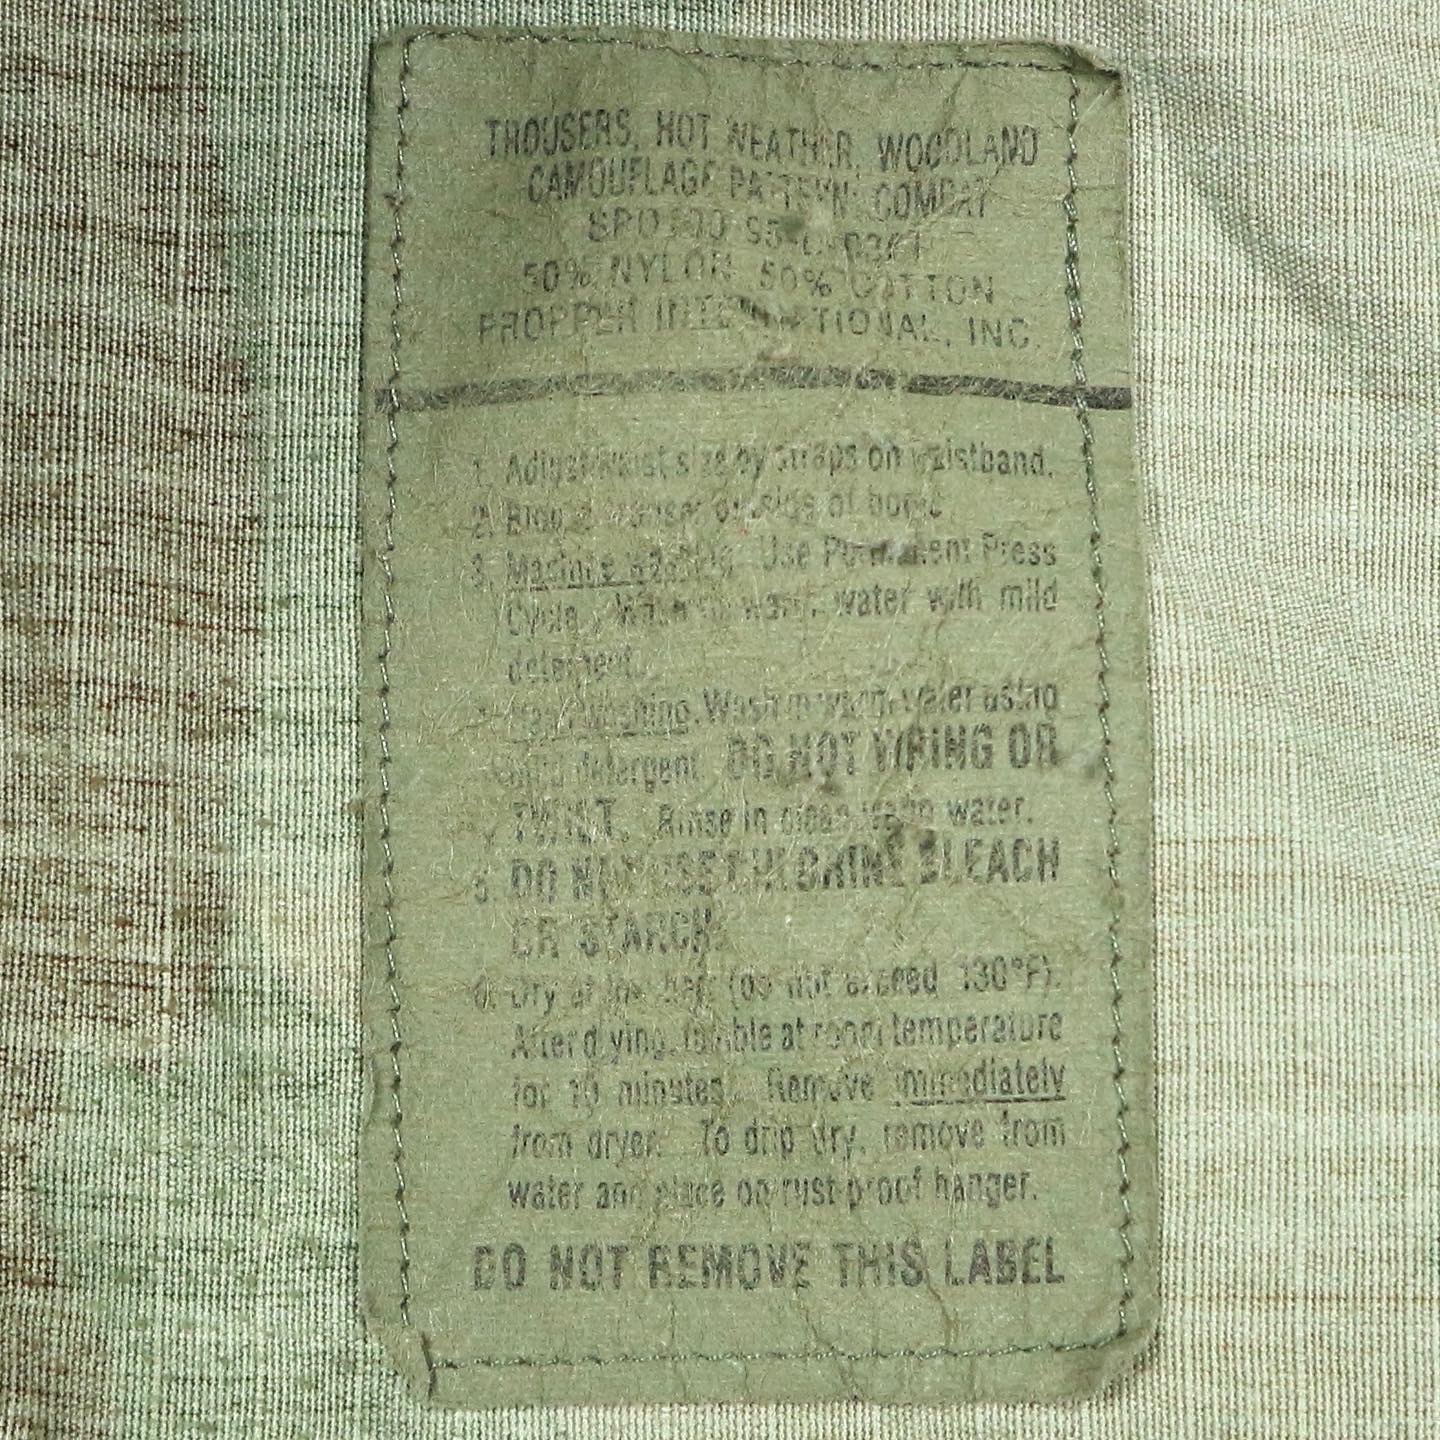 TROUSERS, HOT WEATHER, WOODLAND
CAMOUFLAGE PATTERN: COMBAT
SPO100-95-D-0361
50% NYLON 50% COTTON
PROPPER INTERNATIONAL, INC.
1. Adjust waist size by straps on waistband.
2. Blouse trouser outside of boots.
3. Machine Washing. Use Permanent Press
Cycle. Wash in warm water with mild
detergent.
4. Hand Washing. Wash in warm water using
mild detergent. DO NOT WRING OR
TWIST. Rinse in clean warm water.
5. DO NOT USE CHLORINE BLEACH
OR STARCH.
6. Dry at low heat (do not exceed 130°F).
After drying, tumble at room temperature
for 10 minutes. Remove immediately
from dryer. To drip dry, remove from
water and place on rust proof hanger.
DO NOT REMOVE THIS LABEL